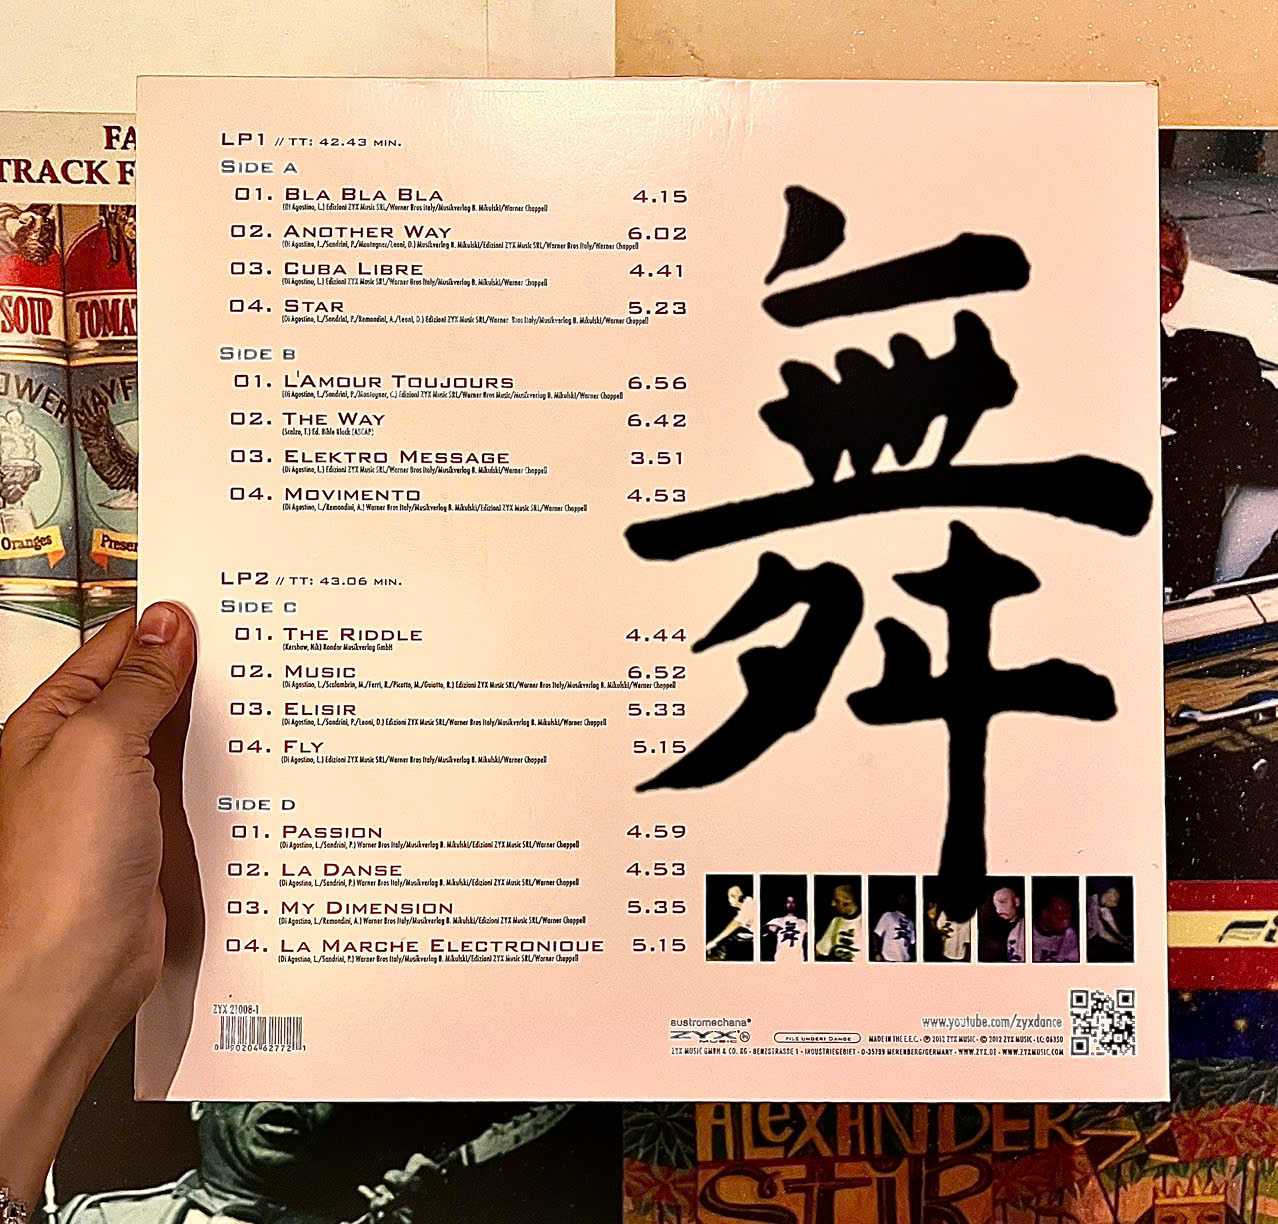 LP1 // TT: 42.43 MIN.
SIDE A
01. BLA BLA BLA 4.15
(Di Agostino, L.) Edizioni ZYX Music SRL/Warner Bros Italy/Musikverlag B. Mikulski/Warner Chappell
02. ANOTHER WAY 6.02
(Di Agostino, L./Sandrini, P./Montagner/Leoni, D.) Musikverlag B. Mikulski/Edizioni ZYX Music SRL/Warner Bros Italy/Warner Chappell
03. CUBA LIBRE 4.41
(Di Agostino, L.) Edizioni ZYX Music SRL/Warner Bros Italy/Musikverlag B. Mikulski/Warner Chappell
04. STAR 5.23
(Di Agostino, L./Sandrini, P./Remondini, A./Leoni, D.) Edizioni ZYX Music SRL/Warner Bros Italy/Musikverlag B. Mikulski/Warner Chappell
SIDE B
01. L'AMOUR TOUJOURS 6.56
(Di Agostino, L./Sandrini, P./Montagner, C.) Edizioni ZYX Music SRL/Warner Bros Music/Musikverlag B. Mikulski/Warner Chappell
02. THE WAY 6.42
(Scalzo, T.) Ed. Bible Black (ASCAP)
03. ELEKTRO MESSAGE 3.51
(Di Agostino, L.) Edizioni ZYX Music SRL/Warner Bros Italy/Musikverlag B. Mikulski/Warner Chappell
04. MOVIMENTO 4.53
(Di Agostino, L./Remondini, A.) Warner Bros Italy/Musikverlag B. Mikulski/Edizioni ZYX Music SRL/Warner Chappell
LP2 // TT: 43.06 MIN.
SIDE C
01. THE RIDDLE 4.44
(Kershaw, Nik) Rondor Musikverlag GmbH
02. MUSIC 6.52
(Di Agostino, L./Scalambrin, M./Ferri, R./Picotto, M./Guiotto, R.) Edizioni ZYX Music SRL/Warner Bros Italy/Musikverlag B. Mikulski/Warner Chappell
03. ELISIR 5.33
(Di Agostino, L./Sandrini, P./Leoni, D.) Edizioni ZYX Music SRL/Warner Bros Italy/Musikverlag B. Mikulski/Warner Chappell
04. FLY 5.15
(Di Agostino, L.) Edizioni ZYX Music SRL/Warner Bros Italy/Musikverlag B. Mikulski/Warner Chappell
SIDE D
01. PASSION 4.59
(Di Agostino, L./Sandrini, P.) Warner Bros Italy/Musikverlag B. Mikulski/Edizioni ZYX Music SRL/Warner Chappell
02. LA DANSE 4.53
(Di Agostino, L./Sandrini, P.) Warner Bros Italy/Musikverlag B. Mikulski/Edizioni ZYX Music SRL/Warner Chappell
03. MY DIMENSION 5.35
(Di Agostino, L./Remondini, A.) Warner Bros Italy/Musikverlag B. Mikulski/Edizioni ZYX Music SRL/Warner Chappell
04. LA MARCHE ELECTRONIQUE 5.15
(Di Agostino, L./Sandrini, P.) Warner Bros Italy/Musikverlag B. Mikulski/Edizioni ZYX Music SRL/Warner Chappell
舞
ZYX 21008-1
0 90204 62772 1
austromechana®
ZYX MUSIC
FILE UNDER: DANCE
www.youtube.com/zyxdance
MADE IN THE E.E.C. • ℗ 2012 ZYX MUSIC • © 2012 ZYX MUSIC • LC: 06350
ZYX MUSIC GMBH & CO. KG • BENZSTRASSE 1 • INDUSTRIEGEBIET • D-35799 MERENBERG/GERMANY • WWW.ZYX.DE • WWW.ZYXMUSIC.COM
FA
TRACK F
SOUP
TOMA
OWER
MAYF
Oranges
Preser
ALEXANDER
STIR